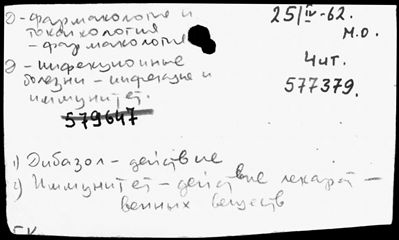 ∂ - фармакология и
токсикология
- фармакология
25/IV-62.
М.О.
∂ - инфекционные
болезни - инфекция и
иммунитет.
Чит.
577379.
579647
1) Дибазол - действие
2) Иммунитет - действие лекарст-
венных веществ